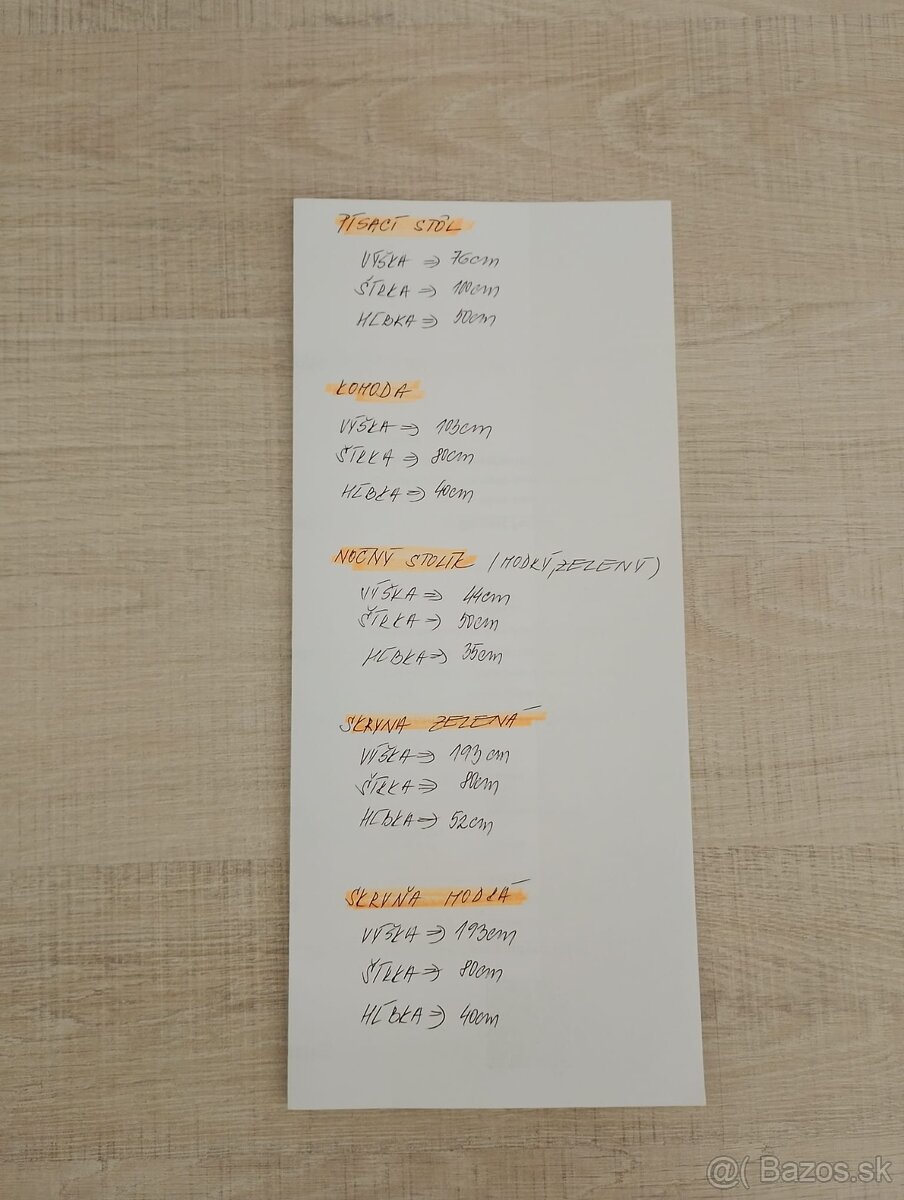 PÍSACÍ STÔL
VÝŠKA => 76cm
ŠÍRKA => 100cm
HĹBKA => 50cm
KOMODA
VÝŠKA => 103cm
ŠÍRKA => 80cm
HĹBKA => 40cm
NOČNÝ STOLÍK /MODRÝ,ZELENÝ)
VÝŠKA => 44cm
ŠÍRKA => 50cm
HĹBKA => 35cm
SKRYŇA ZELENÁ
VÝŠKA => 193cm
ŠÍRKA => 80cm
HĹBKA => 52cm
SKRYŇA MODRÁ
VÝŠKA => 193cm
ŠÍRKA => 80cm
HĹBKA => 40cm
@( Bazos.sk